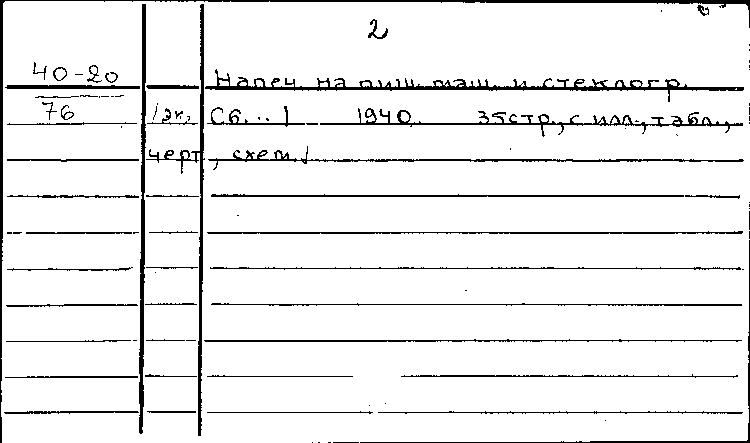 2
40-20 Напеч. на пиш. маш. и стеклогр.
76 1 эк, Сб... | 1940. 35 стр., с илл., табл.,
черт, схем.